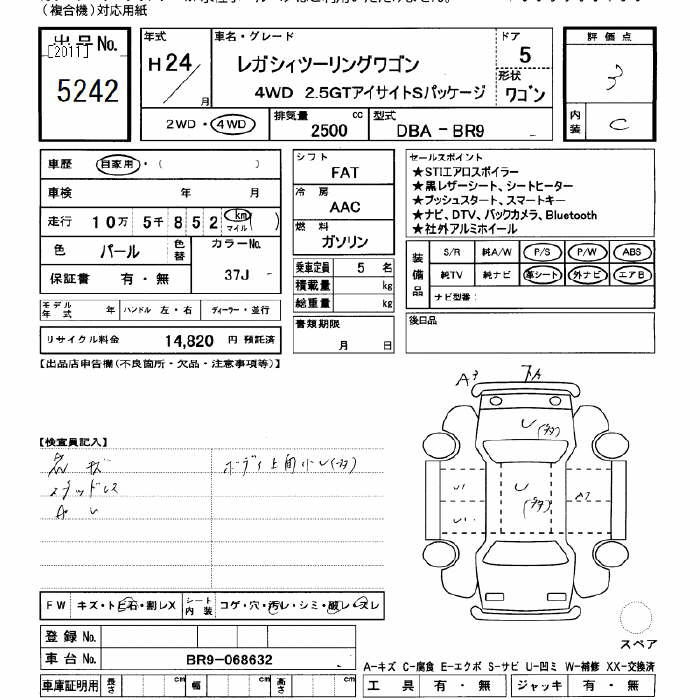 (複合機)対応用紙
出品No.
[2011]
5242
年式 H24/ 月
車名・グレード
レガシィツーリングワゴン
4WD 2.5GTアイサイトSパッケージ
ドア 5
形状 ワゴン
2WD・4WD
排気量 2500 cc
型式 DBA-BR9
評価点
3
内装 C
車歴 自家用・( )
車検 年 月
走行 10万 5千 852 km マイル ( )
色 パール 色替 カラーNo. 37J
保証書 有・無
シフト FAT
冷房 AAC
燃料 ガソリン
乗車定員 5 名
積載量 kg
総重量 kg
セールスポイント
★STIエアロスポイラー
★黒レザーシート、シートヒーター
★プッシュスタート、スマートキー
★ナビ、DTV、バックカメラ、Bluetooth
★社外アルミホイール
装備品 S/R 純A/W P/S P/W ABS
純TV 純ナビ 革シート 外ナビ エアB
ナビ型番:
モデル年式 年 ハンドル 左・右 ディーラー・並行
リサイクル料金 14,820 円 預託済
書類期限 月 日
後日品
【出品店申告欄(不良箇所・欠品・注意事項等)】
【検査員記入】
ボディ上面小U(多)
スタッドレス
A U
FW キズ・トビ石・割レX シート内装 コゲ・穴・汚レ・シミ・破レ・スレ
登録No.
車台No. BR9-068632
車庫証明用 長さ cm 幅 cm 高さ cm
スペア
A-キズ C-腐食 E-エクボ S-サビ U-凹ミ W-補修 XX-交換済
工具 有・無 ジャッキ 有・無